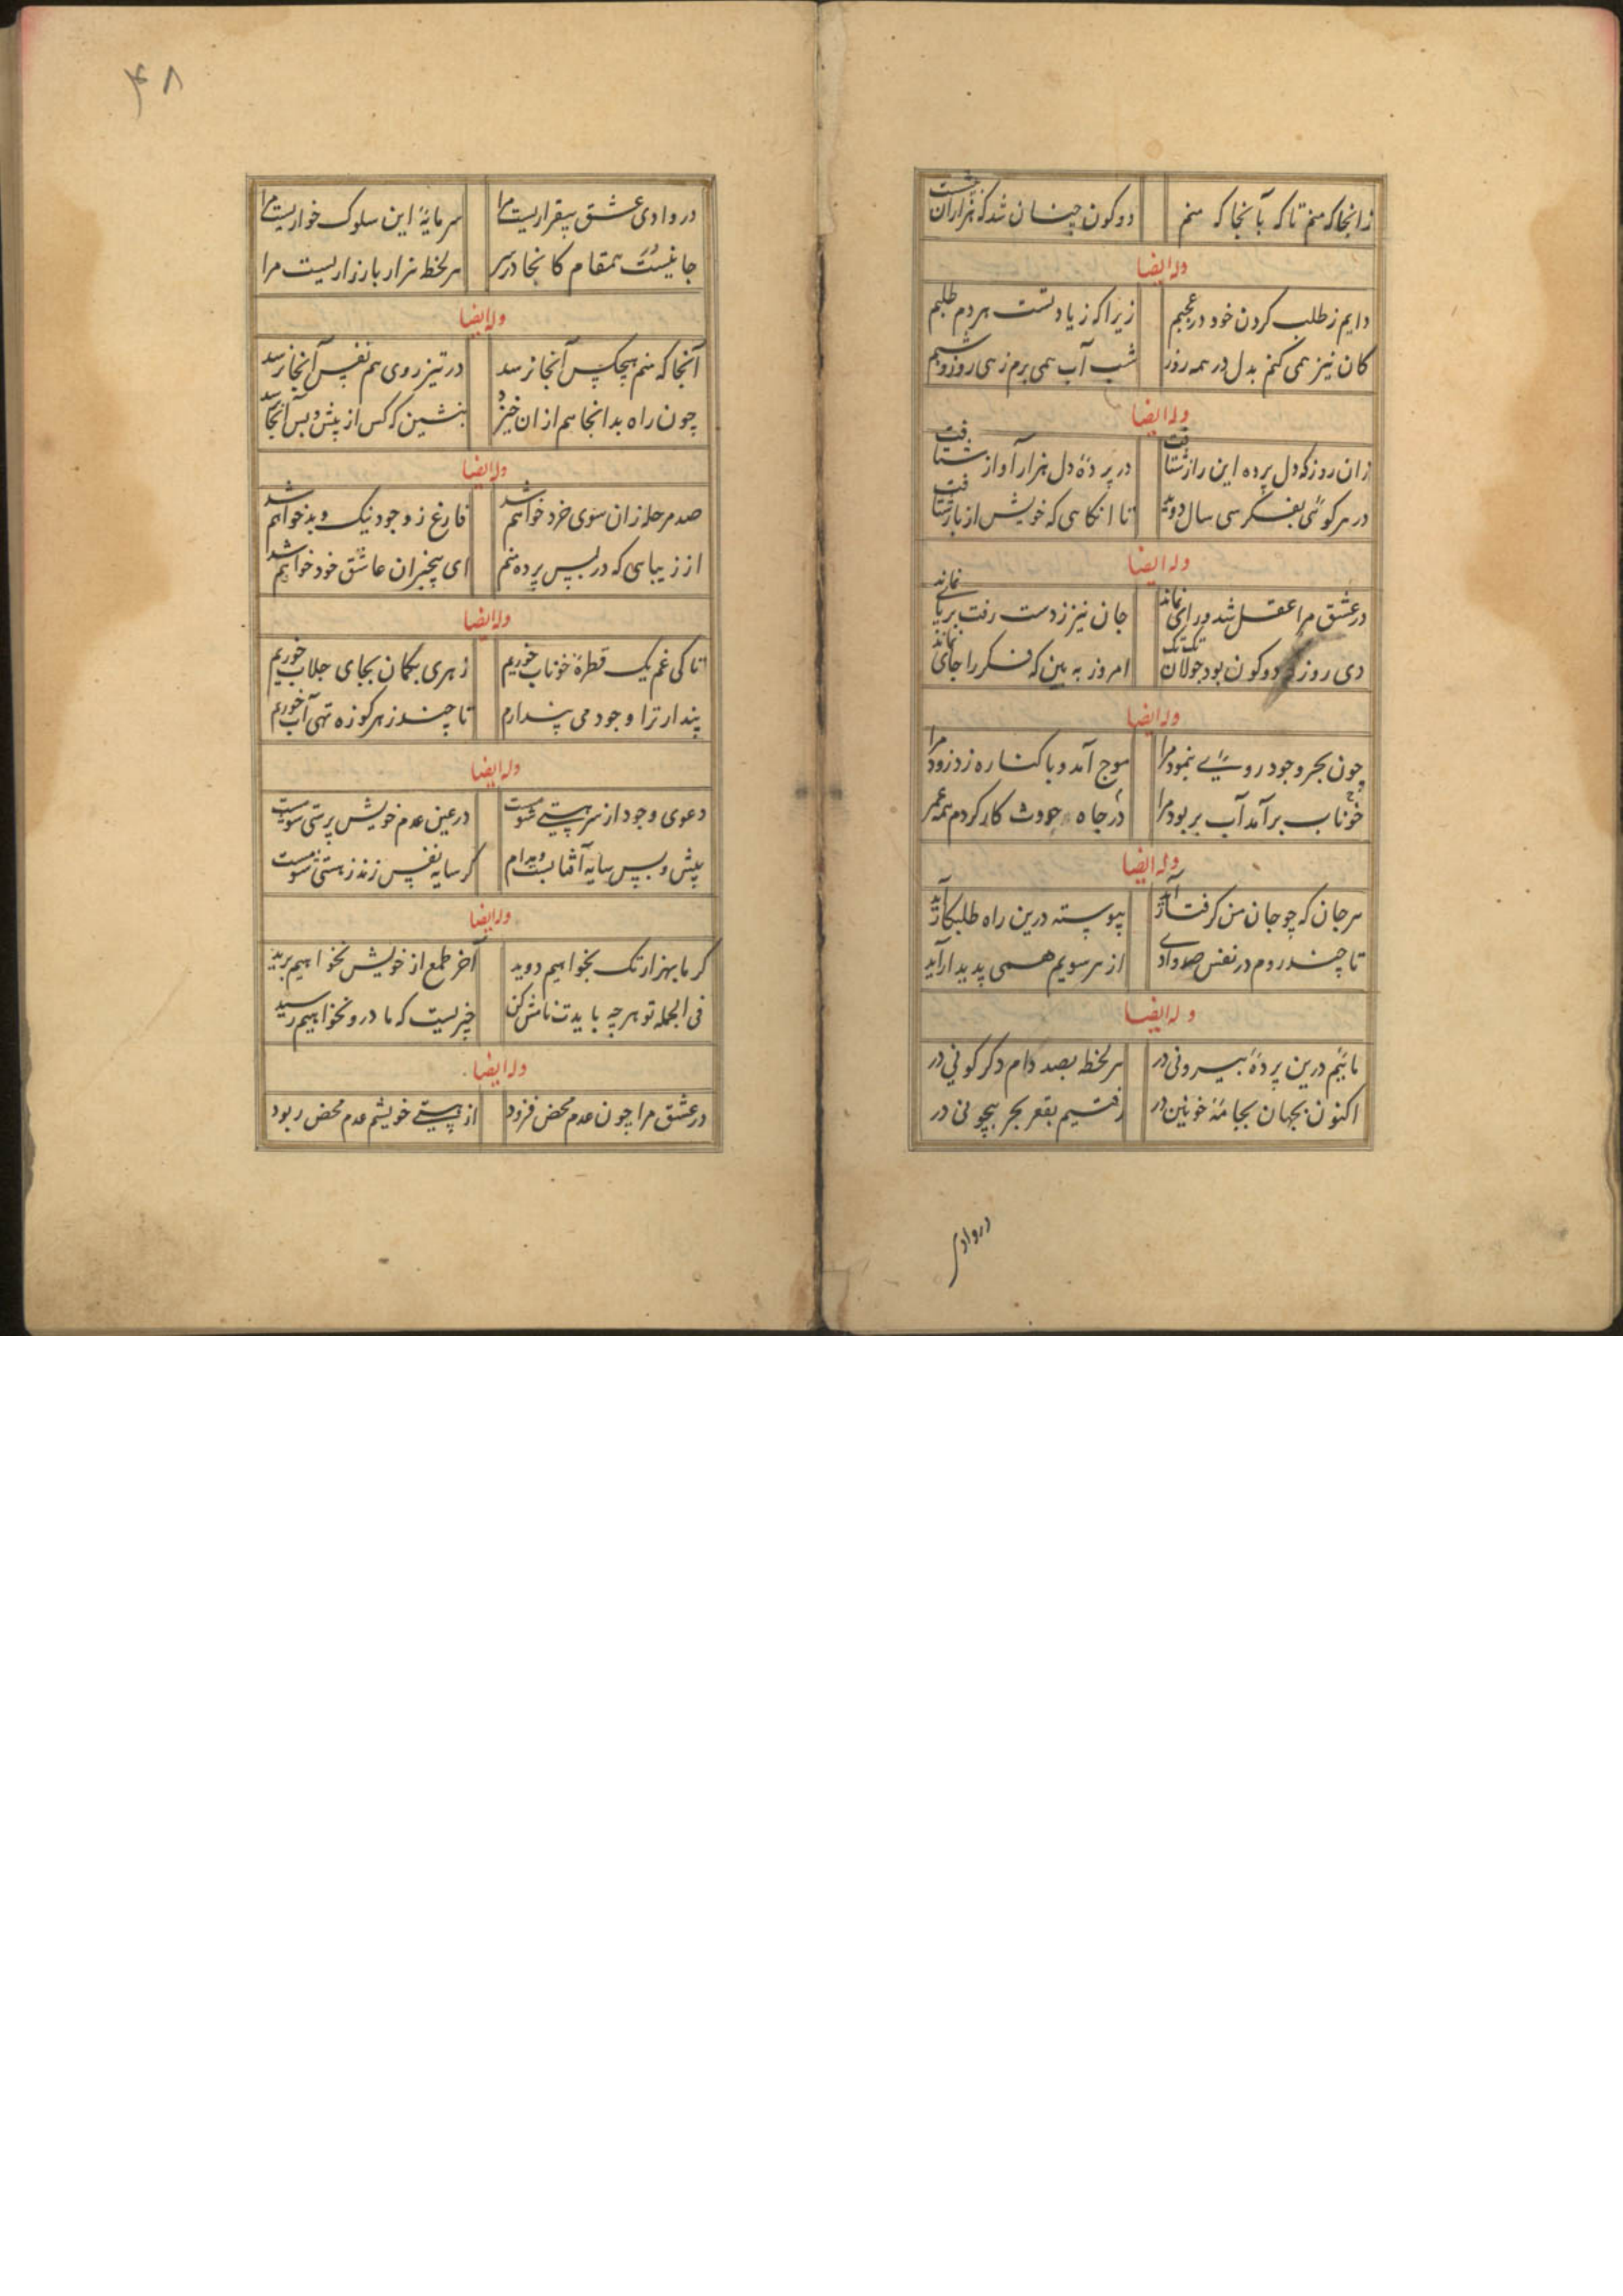 زانجا که منم تا که بآنجا که منم
دو کون چنان شد که هزاران چشت
وله ایضا
دایم ز طلب کردن خود در عجبم
زیرا که زیادتست هر دم طلبم
کان نیز همی کنم بدل در همه روز
شب آب همی برم زهی روز و شبم
وله ایضا
زان روز که دل پرده این راز شتافت
در پردهٔ دل هزار آواز شتافت
در هر کوئی بفکر سی سال دوید
تا انکاهی که خویش از باز شتافت
وله ایضا
در عشق مرا عقل شد و رای نماند
جان نیز ز دست رفت بر پای نماند
دی روز دو کون بود جولان
امروز به بین که فکر را جای نماند
وله ایضا
چون بحر وجود روی بنمود مرا
موج آمد و با کناره زد زود مرا
خوناب برآمد آب بربود مرا
در جاه حدوث کار کردم همه عمر
وله ایضا
هر جان که چو جان من کرفتار آید
پیوسته درین راه طلبکار آید
تا چند روم در نفس صد وادی
از هر سویم همی پدیدار آید
وله ایضا
مائیم درین پردهٔ بیرونی در
هر لحظ بصد دام دکر کونی در
اکنون بجهان بجامهٔ خونین در
رفتیم بقعر بحر بیچونی در
دروادی
۴۸
در وادی عشق بیقراریست مرا
سرمایهٔ این سلوک خواریست مرا
جانیست همقام کانجا در سر
هر لحظ هزار بار زاریست مرا
وله ایضا
آنجا که منم هیچکس آنجا نرسد
در تیز روی هم نفس آنجا نرسد
چون راه بدانجا هم ازان خیزد
بنشین که کس از پیش و پس آنجا نرسد
وله ایضا
صد مرحله زان سوی خرد خواهم شد
فارغ ز وجود نیک و بد خواهم شد
از زیبایی که در پس پرده منم
ای بیخبران عاشق خود خواهم شد
وله ایضا
تا کی غم یک قطرهٔ خوناب خوریم
زهری بکمان بجای جلاب خوریم
پندار ترا وجود می پندارم
تا چند ز هر کوزه تهی آب خوریم
وله ایضا
دعوی وجود از سر هستی شومست
در عین عدم خویش پرستی شومست
پیش و پس سایه آفتابست مدام
کر سایه نفس زند ز هستی شومست
وله ایضا
کر ما بهزار تک بخواهیم دوید
آخر طمع از خویش نخواهیم برید
فی الجمله تو هر چه بایدت نامش کن
چیزیست که ما درو نخواهیم رسید
وله ایضا
در عشق مرا چون عدم محض فزود
از هستی خویشم عدم محض ربود